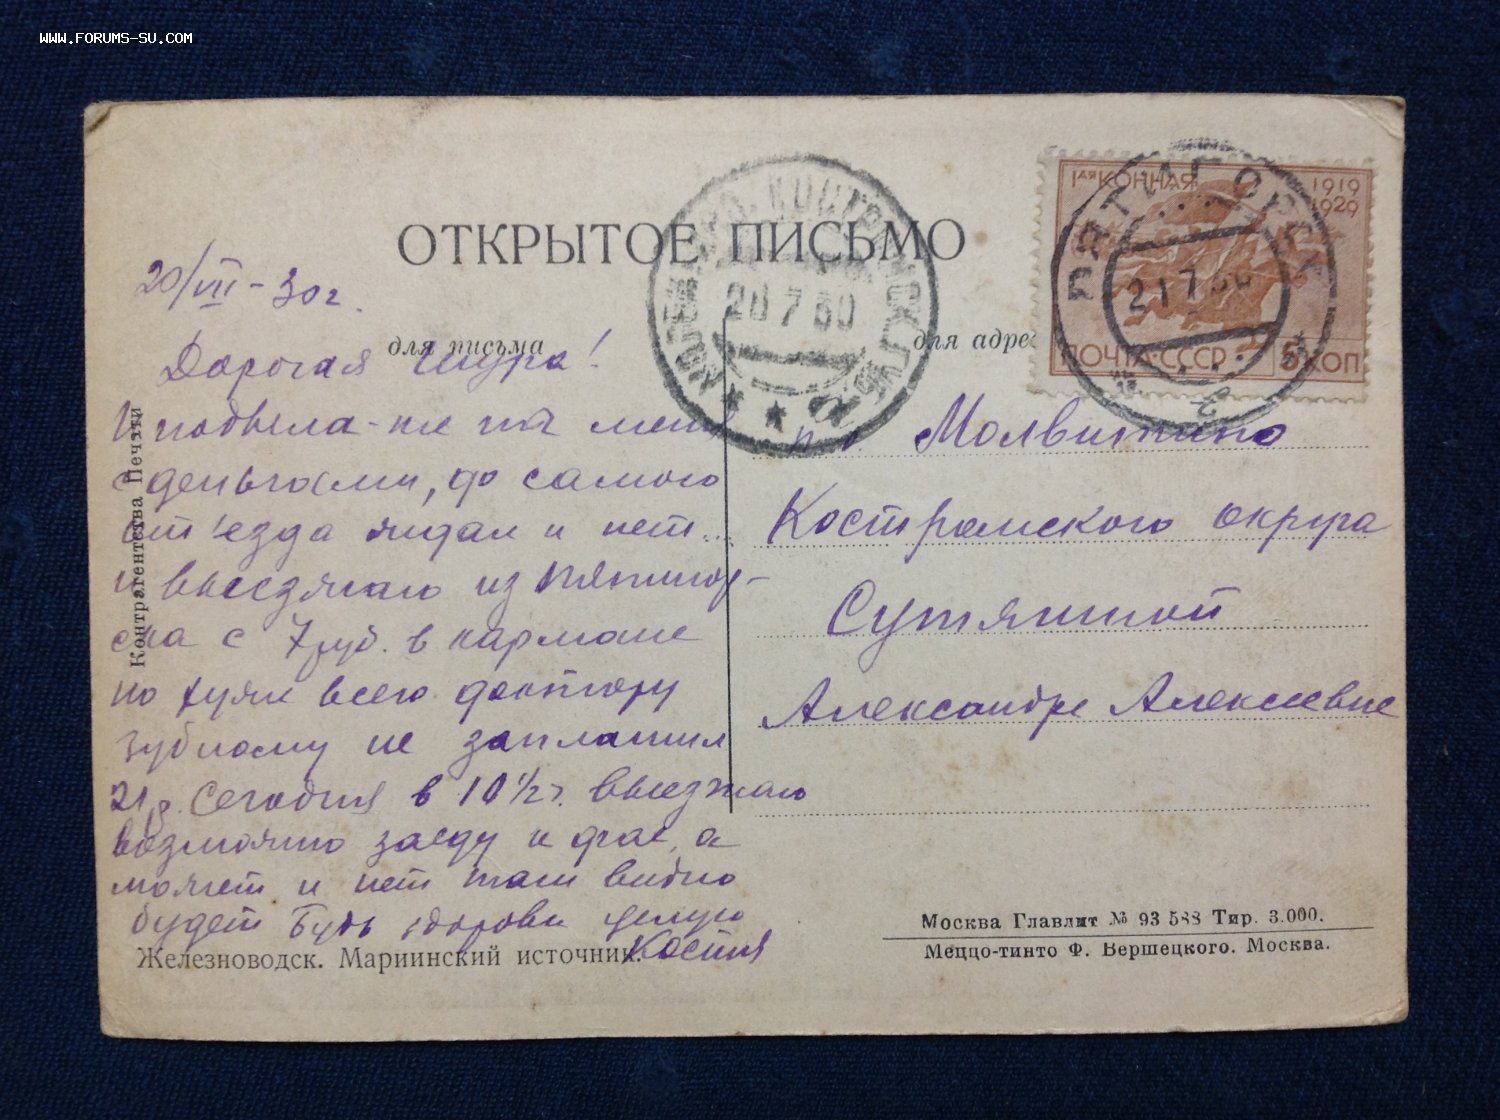 WWW.FORUMS-SU.COM
ОТКРЫТОЕ ПИСЬМО
для письма
для адре
1ая КОННАЯ
1919
1929
ПОЧТА СССР
5 КОП
ПЯТИГОРСК
21 7 30
КОСТРОМСК. ГУБ.
20/VII - 30 г.
Дорогая Шура!
И подвела-же ты меня
с деньгами, до самого
от'езда ждал и нет...
и выезжаю из Пятигор-
ска с 7 руб. в кармане
но хуже всего доктору
зубному не заплатил
21/ Сегодня в 10 1/2 ч. выезжаю
возможно заеду к , а
может и нет там видно
будет Будь здорова целую
Костя
Контрагентства Печати
Железноводск. Мариинский источник.
Молвитино
Костромского округа
Сутягиной
Александре Алексеевне
Москва Главлит № 93 588 Тир. 3.000.
Меццо-тинто Ф. Вершецкого. Москва.